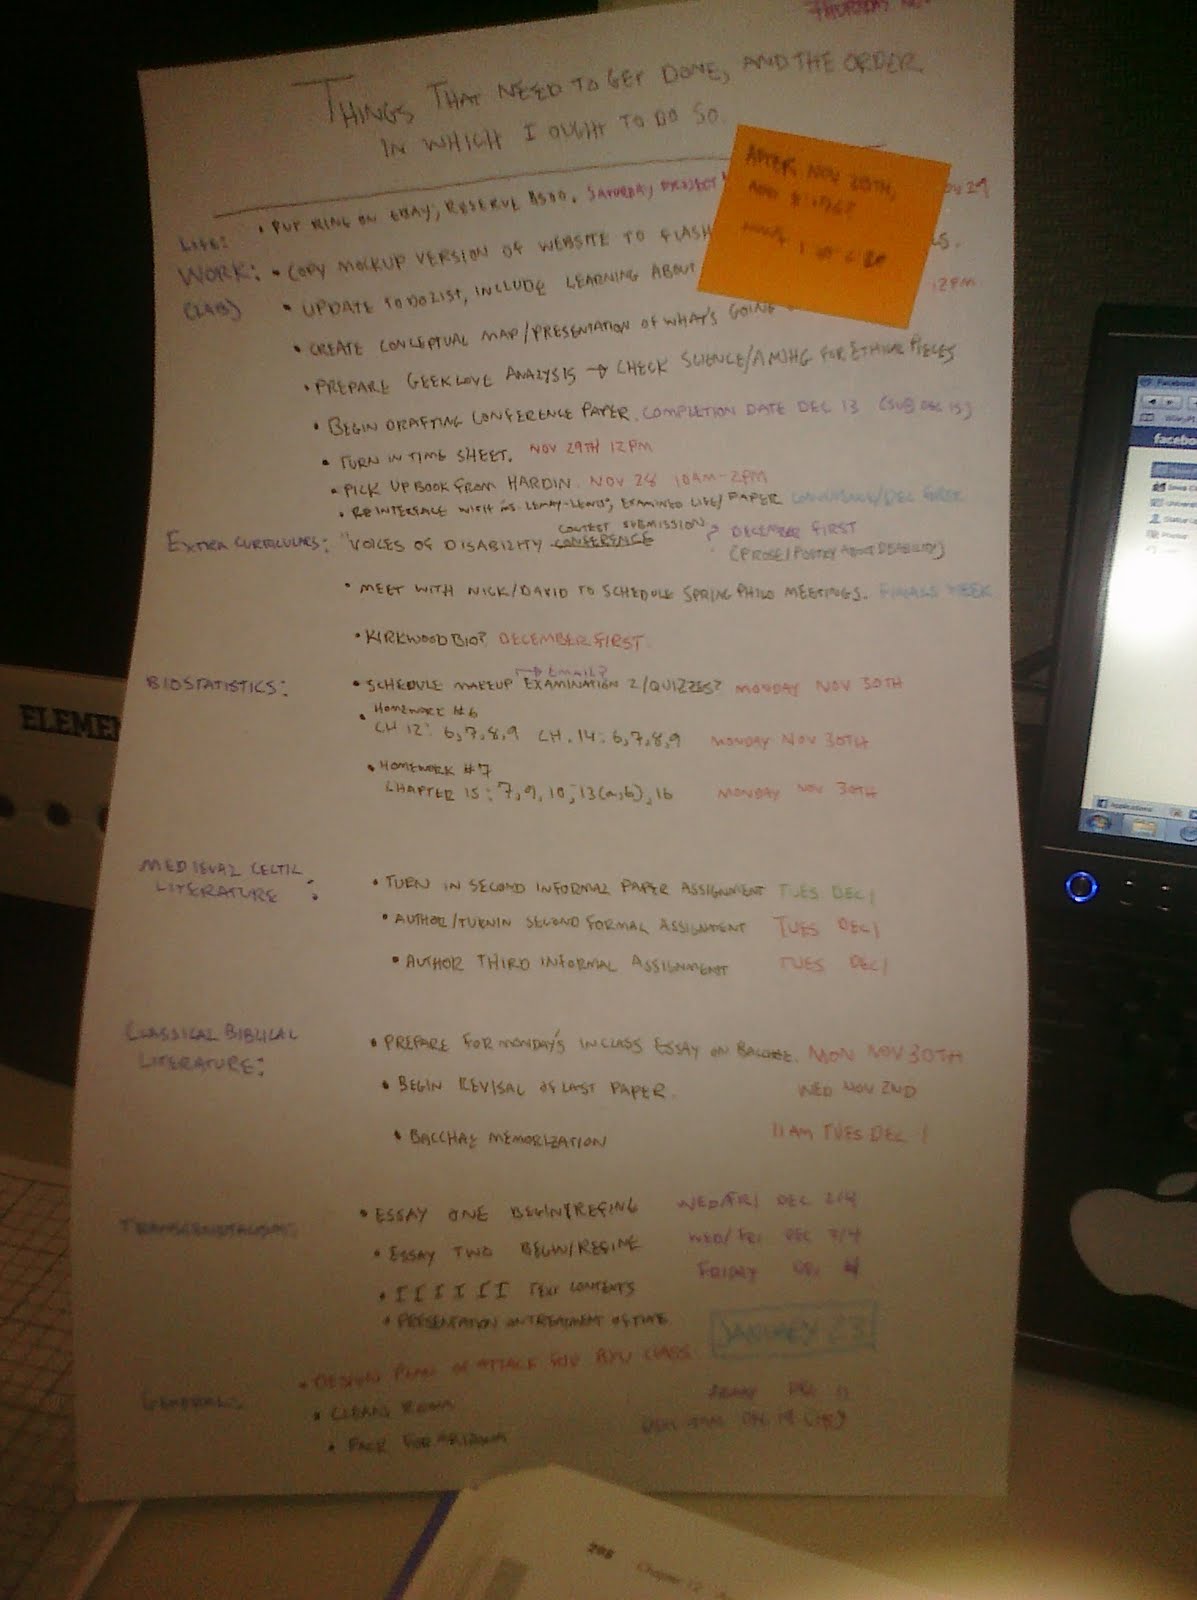 THINGS THAT NEED TO GET DONE, AND THE ORDER
IN WHICH I OUGHT TO DO SO.
AFTER NOV 30TH,
LIFE: • PUT RING ON EBAY, RESERVE SATURDAY PROJECT
WORK: • COPY MOCKUP VERSION OF WEBSITE TO FLASH
(LAB) • UPDATE TO DO LIST, INCLUDE LEARNING ABOUT 12PM
• CREATE CONCEPTUAL MAP/PRESENTATION OF WHAT'S GOING
• PREPARE GEEK LOVE ANALYSIS → CHECK SCIENCE/AMJHG FOR ETHICAL PIECES
• BEGIN DRAFTING CONFERENCE PAPER. COMPLETION DATE DEC 13 (SUB DEC 15)
• TURN IN TIME SHEET. NOV 29TH 12PM
• PICK UP BOOK FROM HARDIN. NOV 28 10AM-2PM
• REINTERFACE WITH MS. LEWAY-LEWIS, EXAMINED LIFE/PAPER
CONTEST SUBMISSION
EXTRA CURRICULARS: "VOICES OF DISABILITY CONFERENCE ? DECEMBER FIRST
(PROSE/POETRY ABOUT DISABILITY)
• MEET WITH NICK/DAVID TO SCHEDULE SPRING PHILO MEETINGS. FINALS WEEK
• KIRKWOOD BIO? DECEMBER FIRST.
→ EMAIL?
BIOSTATISTICS: • SCHEDULE MAKEUP EXAMINATION 2/QUIZZES? MONDAY NOV 30TH
• HOMEWORK #6
CH 12: 6,7,8,9 CH. 14: 6,7,8,9 MONDAY NOV 30TH
• HOMEWORK #7
CHAPTER 15: 7, 9, 10, 13(a,b), 16 MONDAY NOV 30TH
MEDIEVAL CELTIC
LITERATURE: • TURN IN SECOND INFORMAL PAPER ASSIGNMENT TUES DEC 1
• AUTHOR/TURNIN SECOND FORMAL ASSIGNMENT TUES DEC 1
• AUTHOR THIRD INFORMAL ASSIGNMENT TUES DEC 1
CLASSICAL BIBLICAL
LITERATURE: • PREPARE FOR MONDAY'S IN CLASS ESSAY ON BACCHAE. MON NOV 30TH
• BEGIN REVISAL OF LAST PAPER. WED NOV 2ND
• BACCHAE MEMORIZATION 11 AM TUES DEC 1
• ESSAY ONE BEGIN/REFINE WED/FRI DEC 2/4
• ESSAY TWO BEGIN/REFINE WED/FRI DEC 2/4
• I I I I I I TEXT CONTENTS FRIDAY DEC 4
• PRESENTATION ON TREATMENT OF TIME
JANUARY 23
• DESIGN PLAN OF ATTACK FOR CLASS
GENERAL: • CLEAN ROOM FRIDAY DEC 11
• PACK FOR ARIZONA
ELEMEN
facebo
Applications
205 Chapter 12